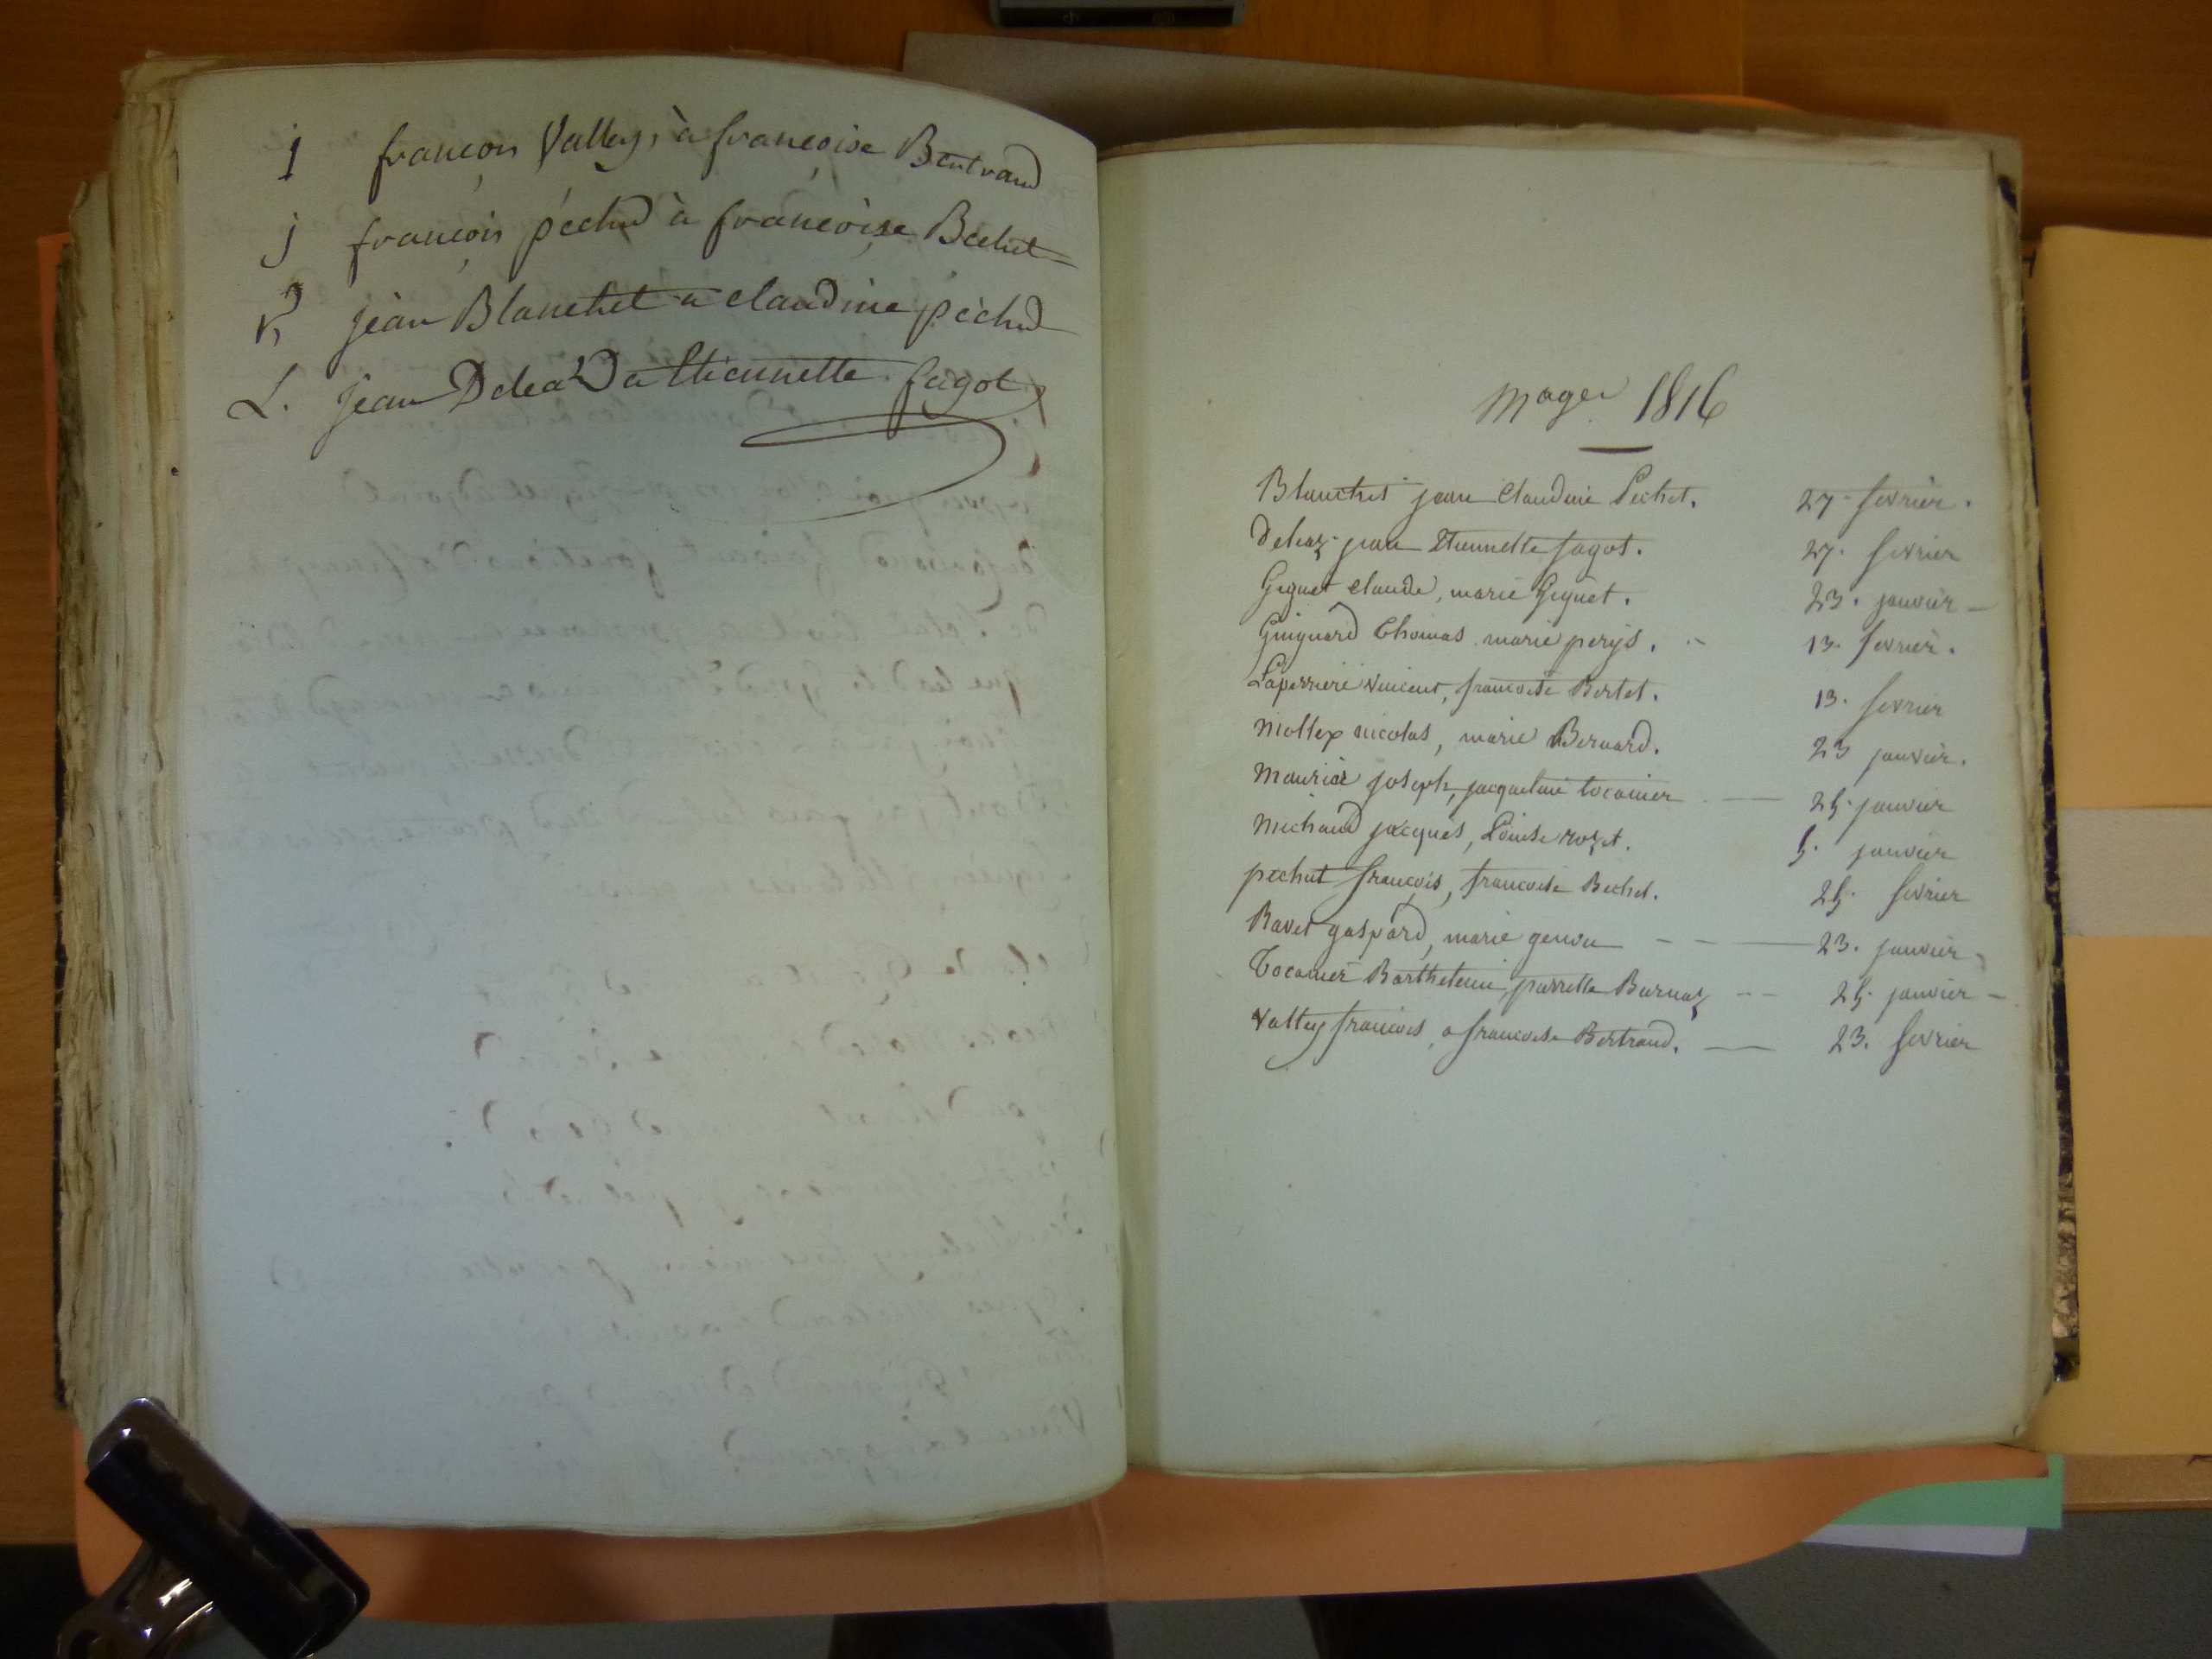 j françois Vallez, à françoise Bertrand
j françois péchud à françoise Bechet
K jean Blanchet a claudine péchud
L. jean Deleaz a Etiennette fagot
Mage 1816
Blanchet jean Claudine Pechet. 27 fevrier.
Deleaz jean Etiennette fagot. 27. fevrier
Giguet claude, marie Giguet. 23. janvier
Guiguard Thomas marie perys. 13. fevrier.
Laperriere vincent, francoise Bertet. 13. fevrier
Mollex nicolas, marie Bernard. 23 janvier.
Maurice joseph, jacqueline tocanier 25. janvier
Michaud jacques, Louise rozet. 5. janvier
pechut françois, francoise Bechet. 25. fevrier
Ravet gaspard, marie genou 23. janvier
Tocanier Barthelemi, pierrette Burnaz 25. janvier
Vallez francois, a francoise Bertrand. 23. fevrier